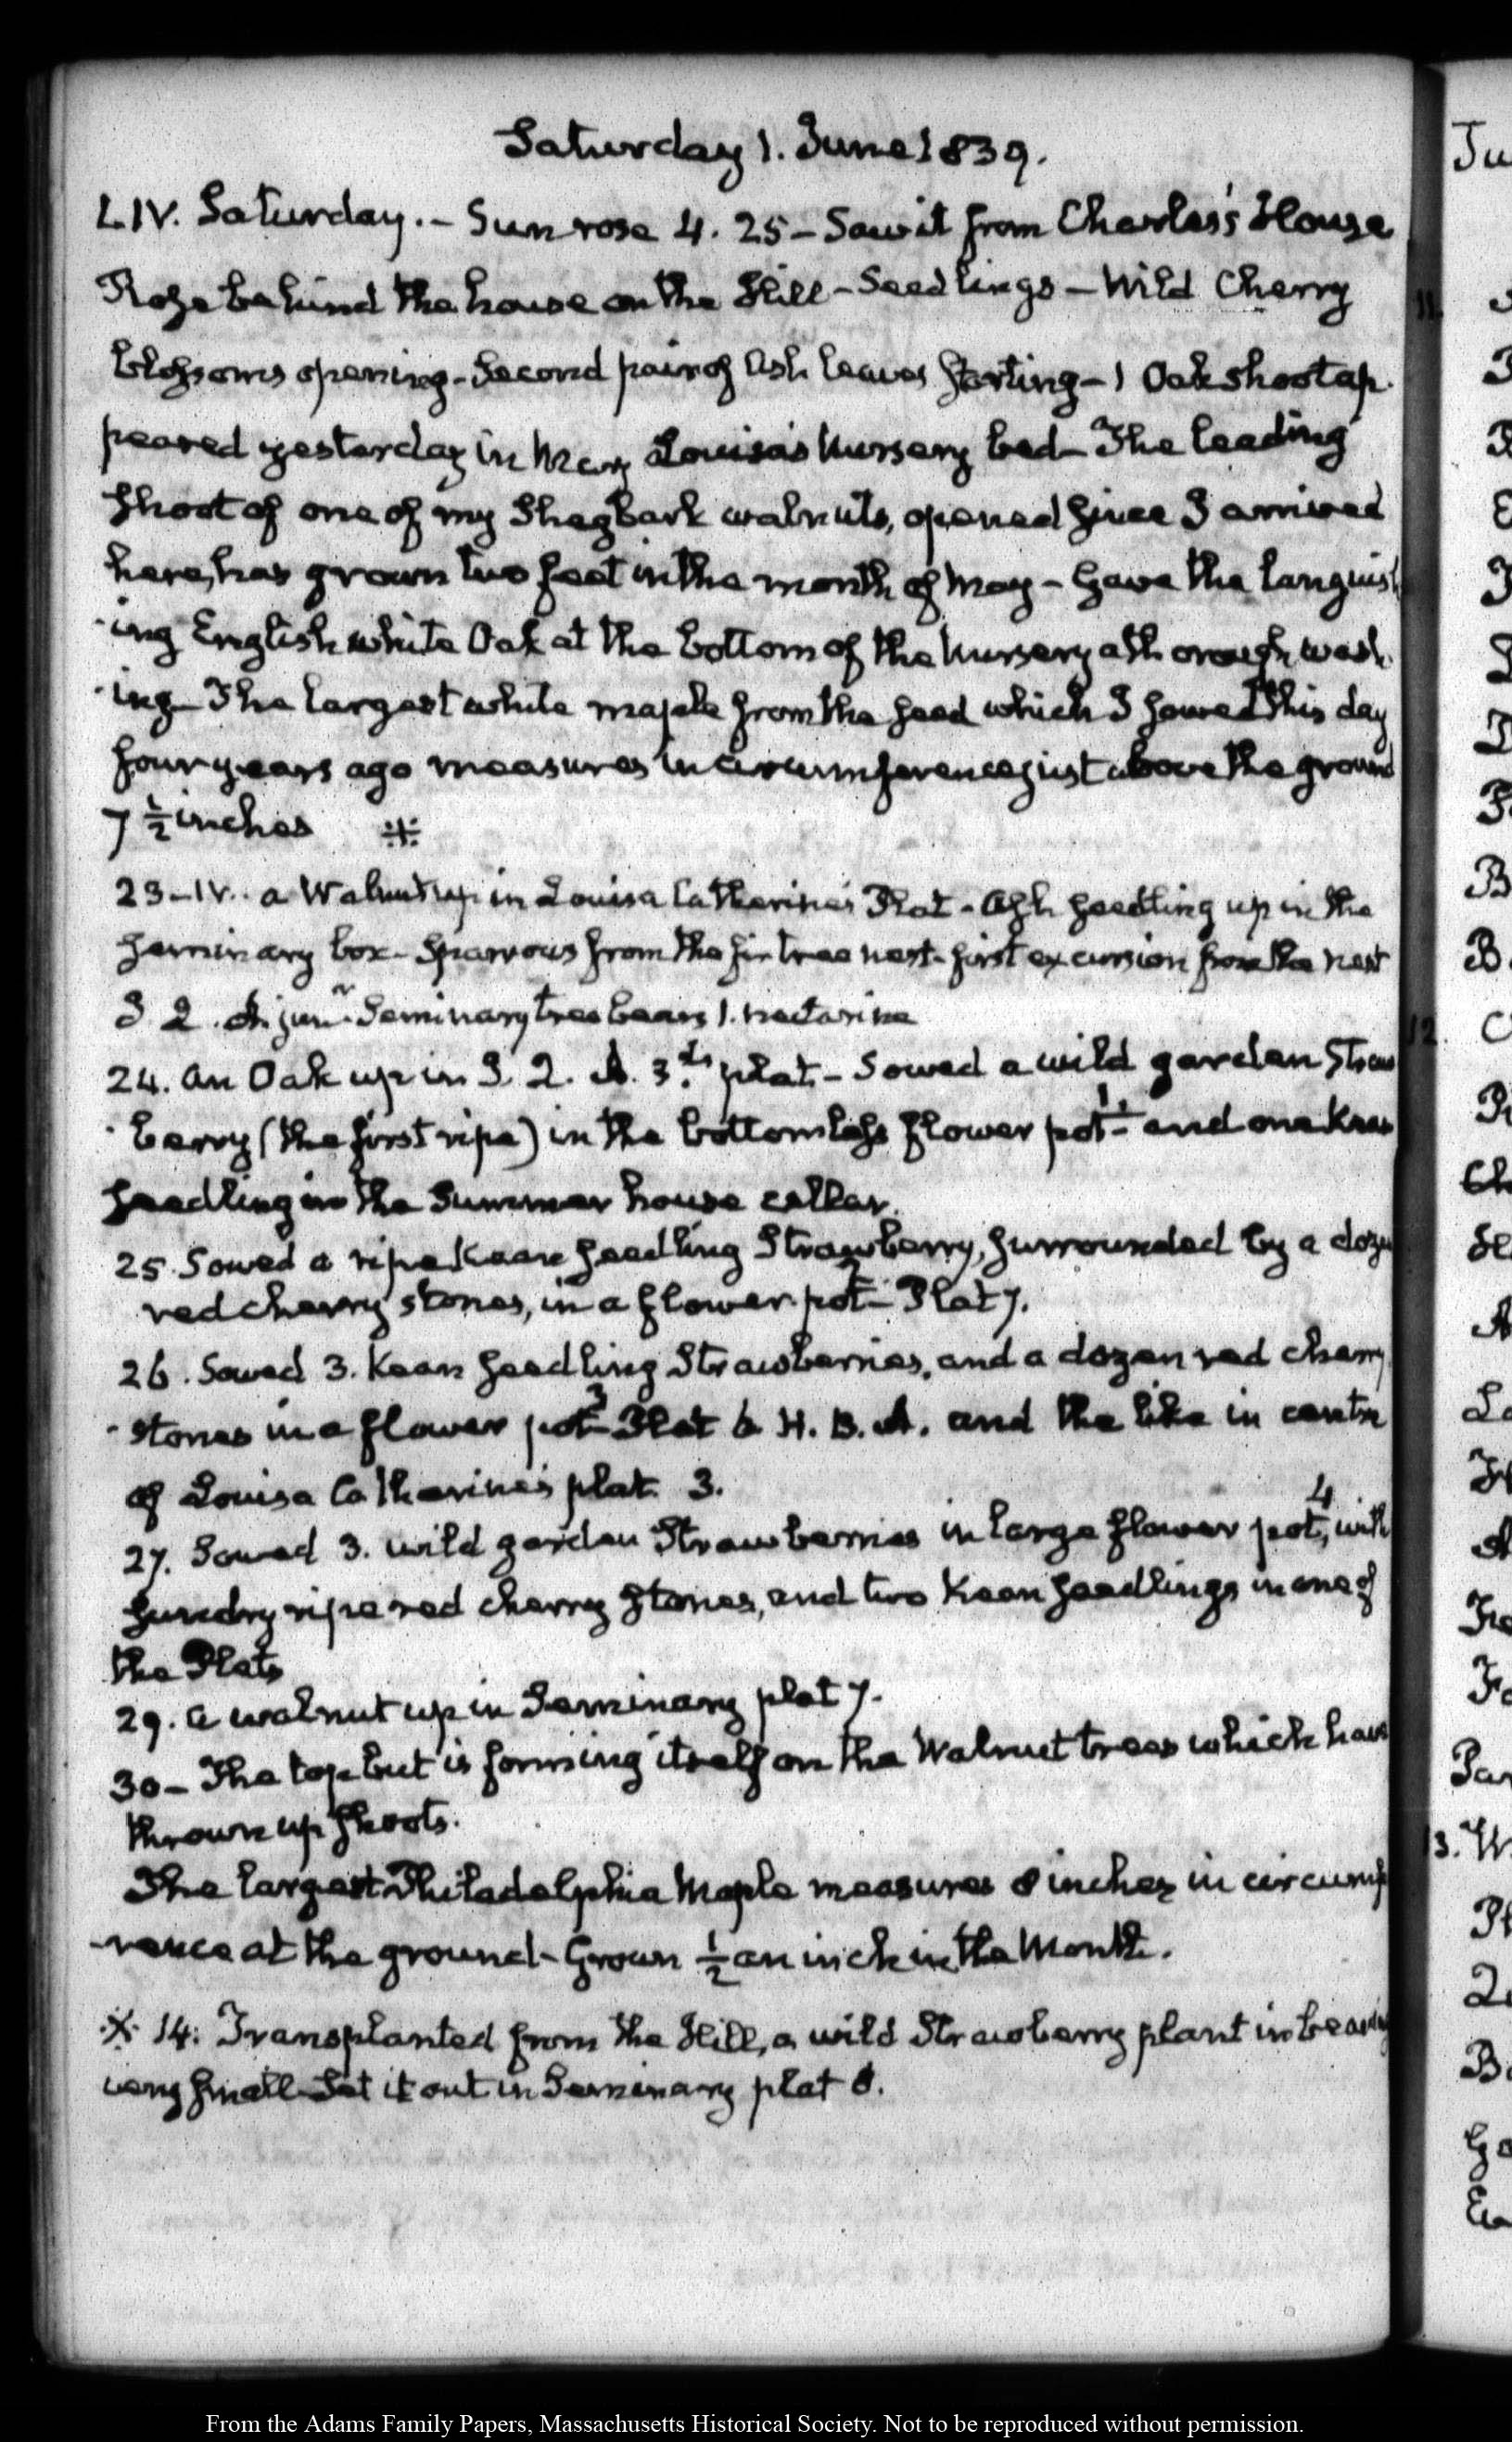 Saturday 1. June 1839.
L.IV. Saturday. - Sun rose 4. 25 - Saw it from Charles's House
Rose behind the house on the Hill - Seedlings - Wild Cherry
blossoms opening - Second pair of Ash leaves starting - 1 Oak shoot ap-
peared yesterday in Mary Louisa's Nursery bed - The leading
shoot of one of my Shagbark walnuts, opened since I arrived
here, has grown two feet in the month of May - Gave the languish
-ing English white Oak at the bottom of the Nursery a thorough wash
-ing - The largest white maple from the seed which I sowed this day
four years ago measures in circumference just above the ground
7 1/2 inches ⁜
23-IV. a Walnut up in Louisa Catherine's Plat - Ash seedling up in the
seminary box - Sparrows from the fir tree nest - first excursion from the nest
J. Q. A. junr. Seminary tree bears 1. nectarine
24. An Oak up in J. Q. A. 3.d plat - Sowed a wild garden Straw
-berry (the first ripe) in the bottomless flower pot 1. - and one Kean
seedling in the Summer house cellar.
25 Sowed a ripe Kean seedling Strawberry, surrounded by a dozen
red cherry stones, in a flower pot 2 - Plat 7.
26. Sowed 3. Kean seedling Strawberries, and a dozen red cherry
-stones in a flower pot 3 - Plat 6 H. B. A. and the like in centre
of Louisa Catherine's plat. 3.
27. Sowed 3. wild garden Strawberries in large flower pot 4, with
sundry ripe red cherry stones, and two Kean seedlings in one of
the Plats
29. a walnut up in Seminary plat 7.
30 - The top but is forming itself on the Walnut trees which have
thrown up shoots.
The largest Philadelphia Maple measures 8 inches in circumfe
-rence at the ground - Grown 1/2 an inch in the Month.
⁜ 14: Transplanted from the Hill, a wild Strawberry plant in bearing
very small - Set it out in Seminary plat 8.
From the Adams Family Papers, Massachusetts Historical Society. Not to be reproduced without permission.